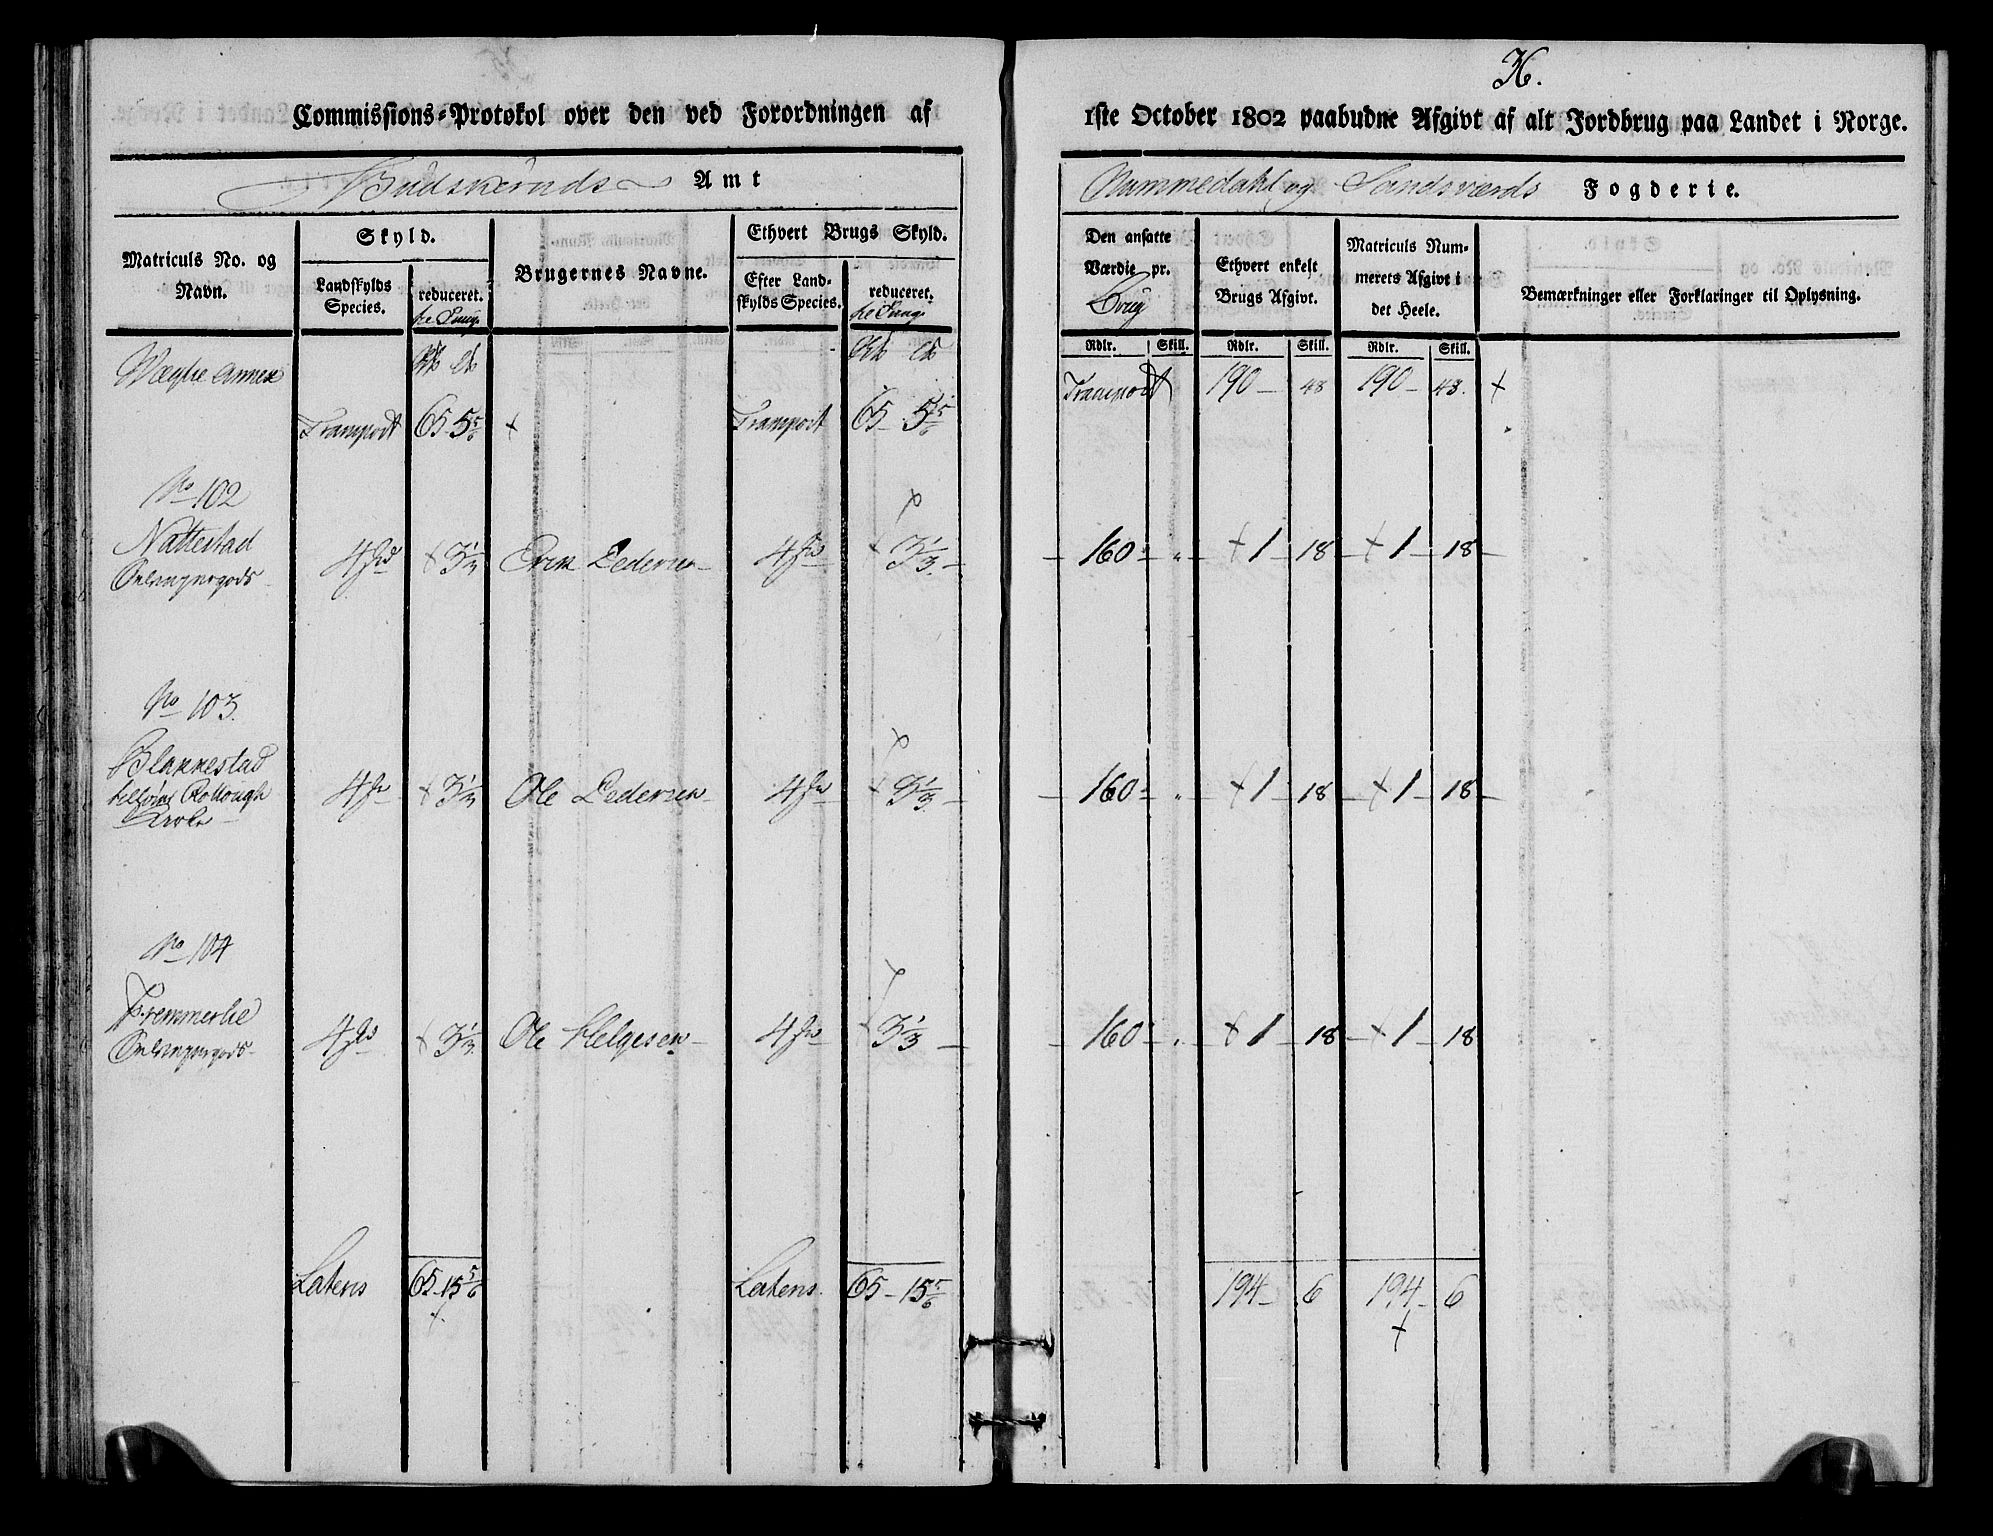 Commissions-Protokol over den ved Forordningen af
Budskeruds Amt
Matriculs No. og Navn.
Skyld.
Landskylds Species.
reduceret.
Brugernes Navne.
Ethvert Brugs Skyld.
Efter Landskylds Species.
reduceret.
Wæglie Annex
Transport 65 5 5/6 + Transport 65 5 5/6
No 102
Nattestad
4 + 3 1/3 Erik Pedersen 4 + 3 1/3
No 103.
Blakkestad
4 + 3 1/3 Ole Pedersen 4 + 3 1/3
No 104
Fremmerlie
4 + 3 1/3 Ole Helgesen 4 3 1/3
Latens 65 15 5/6 Latens 65 15 5/6
36.
1ste October 1802 paabudne Afgivt af alt Jordbrug paa Landet i Norge.
Nummedahl og Sandsværds Fogderie.
Den ansatte Værdie pr. Brug
Ethvert enkelt Brugs Afgivt.
Matriculs Nummerets Afgivt i det Heele.
Bemærkninger eller Forklaringer til Oplysning.
Rdlr. Skill. Rdlr. Skill. Rdlr. Skill.
Transport 190 48 190 48. +
160 " + 1 18 + 1 18
160 " + 1 18 + 1 18
160 " + 1 18 + 1 18
194 6 194 6
+